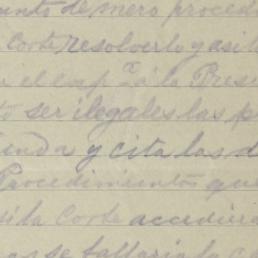 unto de mero proced
Corte resolverlo y asi l
el Cap. a la Presi
ser ilegales las p
unda y cita las d
Procedimientos que
si la Corte accedier
se fallaria la c